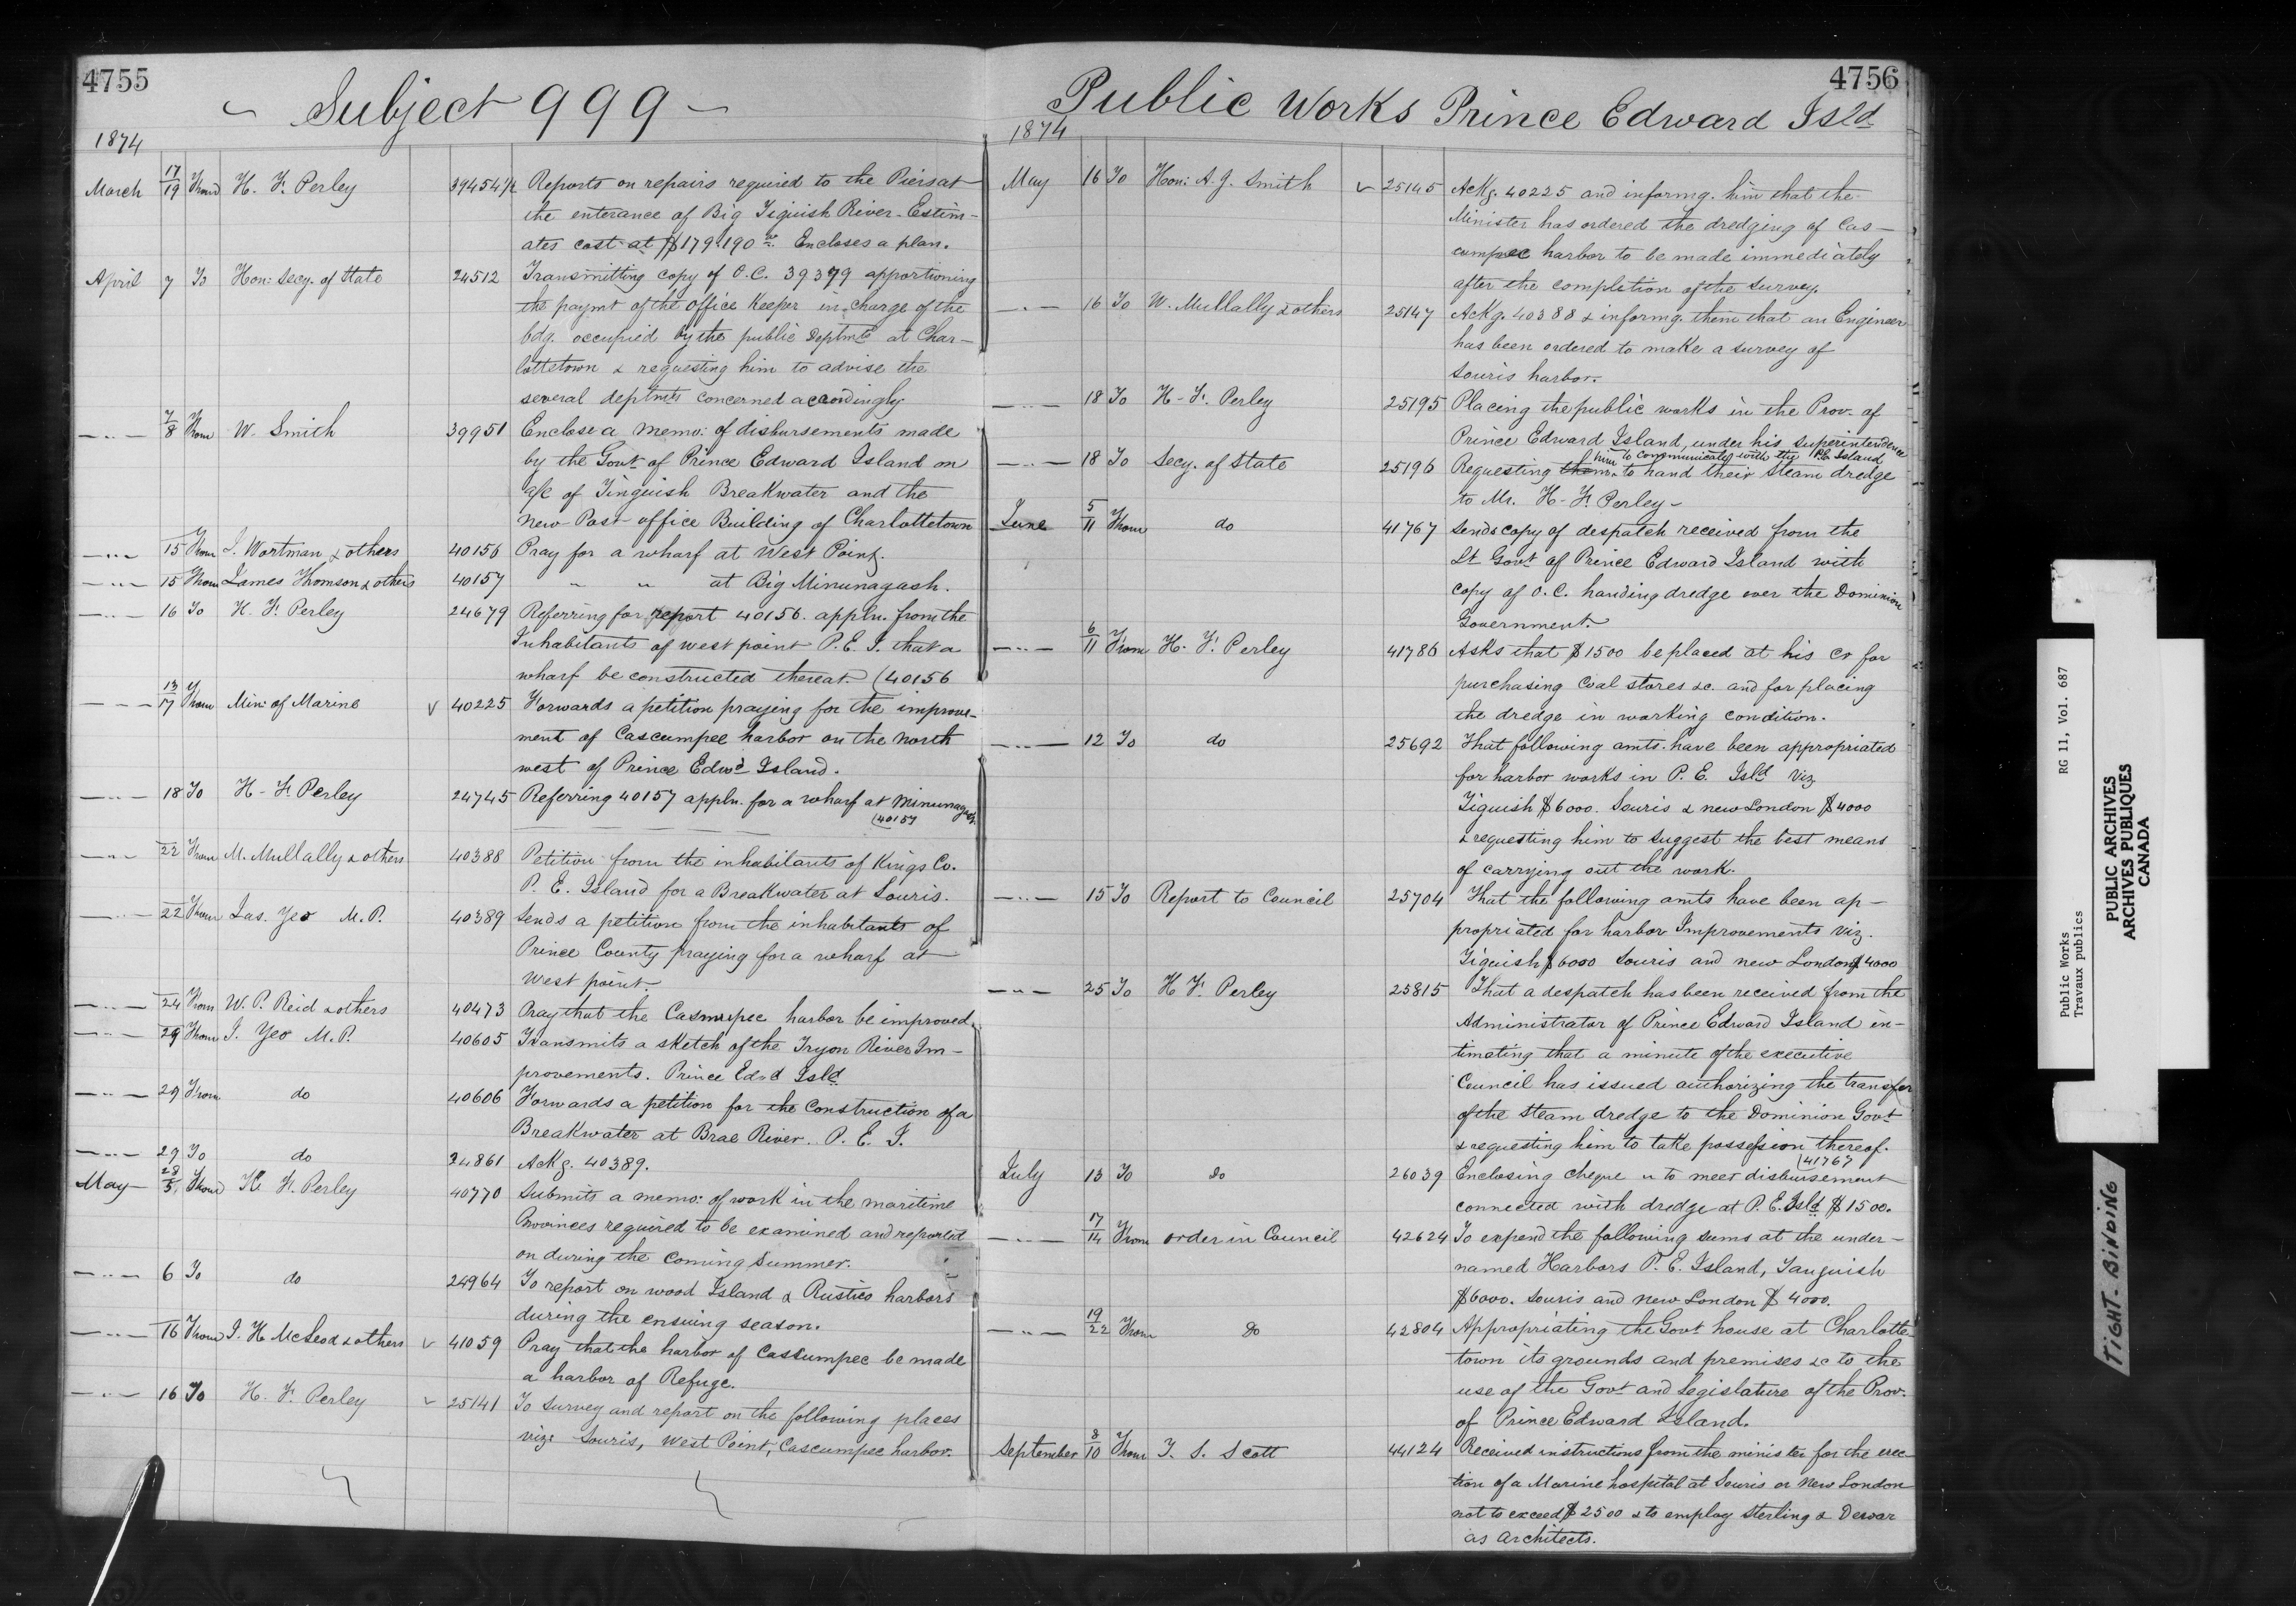 4755
Subject 999
1874
March 17/19 From H. F. Perley 39454½ Reports on repairs required to the Piers at
the enterance of Big Tiguish River - Estim-
ates cost at $179.190 Encloses a plan.
April 7 To Hon: Secy. of State 24512 Transmitting copy of O.C. 39379 apportioning
the paymt of the office Keeper in charge of the
bdg. occupied by the public Deptmts at Char-
lottetown & requesting him to advise the
several deptmts concerned accordingly
—"— 7/8 From W. Smith 39951 Enclose a memo: of disbursements made
by the Govt of Prince Edward Island on
a/c of Tinguish Breakwater and the
new Post office Building of Charlottetown
—"— 15 From J. Wortman & others 40156 Pray for a wharf at West Point.
—"— 15 From James Thomson & others 40157 " " at Big Minunagash.
—"— 16 To H. F. Perley 24679 Referring for report 40156. appln. from the
Inhabitants of west point P. E. I. that a
wharf be constructed thereat (40156
—"— 13/17 From Min: of Marine √ 40225 Forwards a petition praying for the improve-
ment of Cascumpee harbor on the north
west of Prince Edwd Island.
—"— 18 To H. F. Perley 24745 Referring 40157 appln. for a wharf at Minunagash.
(40157
—"— 22 From M. Mullally & others 40388 Petition from the inhabitants of Kings Co.
P. E. Island for a Breakwater at Souris.
—"— 22 From Jas. Yeo M. P. 40389 Sends a petition from the inhabitants of
Prince County praying for a wharf at
West point.
—"— 24 From W. P. Reid & others 40473 Pray that the Casmupec harbor be improved.
—"— 29 From J. Yeo M. P. 40605 Transmits a sketch of the Tryon River Im-
provements. Prince Edwd Isld
—"— 29 From do 40606 Forwards a petition for the construction of a
Breakwater at Brae River. P. E. I.
—"— 29 To do 24861 Ackg. 40389.
May 28/5 From H. F. Perley 40770 Submits a memo: of work in the maritime
Provinces required to be examined and reported
on during the coming summer.
—"— 6 To do 24964 To report on wood Island & Rustico harbors
during the ensuing season.
—"— 16 From J. H. McLeod & others √ 41059 Pray that the harbor of Cascumpec be made
a harbor of Refuge.
—"— 16 To H. F. Perley √ 25141 To survey and report on the following places
viz: Souris, West Point, Cascumpec harbor.
4756
Public Works Prince Edward Isld
1874
May 16 To Hon: A. J. Smith √ 25145 Ackg. 40225 and informg. him that the
Minister has ordered the dredging of Cas-
cumpec harbor to be made immediately
after the completion of the survey.
—"— 16 To W. Mullally & others 25147 Ackg. 40388 & informg. them that an Engineer
has been ordered to make a survey of
Souris harbor.
—"— 18 To H. F. Perley 25195 Placing the public works in the Prov. of
Prince Edward Island, under his superintendence
—"— 18 To Secy. of State 25196 Requesting them him to communicate with the P.E. Island to hand their steam dredge
to Mr. H. F. Perley -
June 5/11 From do 41767 Sends copy of despatch received from the
Lt Govt of Prince Edward Island with
copy of O. C. handing dredge over the Dominion
Government.
—"— 6/11 From H. F. Perley 41786 Asks that $1500 be placed at his cr for
purchasing Coal stores &c. and for placing
the dredge in working condition.
—"— 12 To do 25692 That following amts. have been appropriated
for harbor works in P. E. Isld viz
Tiguish $6000. Souris & new London $4000
& requesting him to suggest the best means
of carrying out the work.
—"— 15 To Report to Council 25704 That the following amts have been ap-
propriated for harbor Improvements viz.
Tiguish $6000 Souris and new London $4000
—"— 25 To H F. Perley 25815 That a despatch has been received from the
Administrator of Prince Edward Island in-
timating that a minute of the executive
Council has issued authorizing the transfer
of the steam dredge to the Dominion Govt
& requesting him to take possession thereof.
(41767
July 13 To do 26039 Enclosing cheque " to meet disbursement
connected with dredge at P. E. Isld $1500.
—"— 17/14 From order in Council 42624 To expend the following sums at the under-
named Harbors P. E. Island, Tanguish
$6000. Souris and new London $4000.
—"— 19/22 From do 42804 Appropriating the Govt house at Charlotte
town its grounds and premises &c to the
use of the Govt and Legislature of the Prov.
of Prince Edward Island.
September 8/10 From T. S. Scott 44124 Received instructions from the minister for the erec-
tion of a Marine hospital at Souris or New London
not to exceed $2500 & to employ Sterling & Dewar
as Architects.
Public Works RG 11, Vol. 687
Travaux publics
PUBLIC ARCHIVES
ARCHIVES PUBLIQUES
CANADA
TIGHT. BINDING